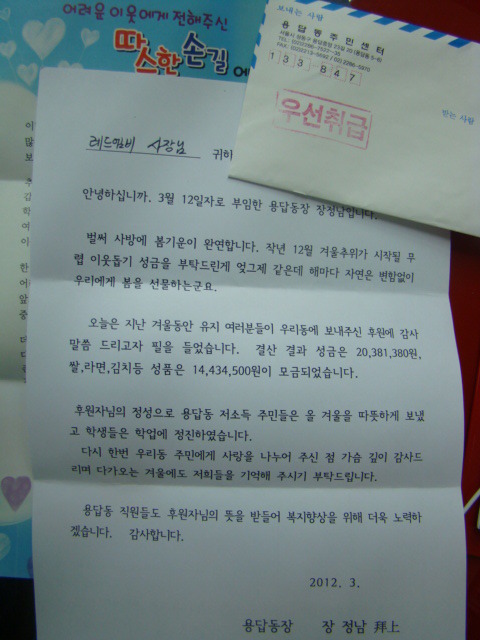 어려운 이웃에게 전해주신
따스한 손길에
보내는 사람
용답동주민센터
서울시 성동구 용답중앙 23길 20 (용답동 5-6)
133 847
우선취급
받는 사람
사장님 귀하
안녕하십니까. 3월 12일자로 부임한 용답동장 장정남입니다.
벌써 사방에 봄기운이 완연합니다. 작년 12월 겨울추위가 시작될 무
렵 이웃돕기 성금을 부탁드린게 엊그제 같은데 해마다 자연은 변함없이
우리에게 봄을 선물하는군요.
오늘은 지난 겨울동안 유지 여러분들이 우리동에 보내주신 후원에 감사
말씀 드리고자 필을 들었습니다. 결산 결과 성금은 20,381,380원,
쌀,라면,김치등 성품은 14,434,500원이 모금되었습니다.
후원자님의 정성으로 용답동 저소득 주민들은 올 겨울을 따뜻하게 보냈
고 학생들은 학업에 정진하였습니다.
다시 한번 우리동 주민에게 사랑을 나누어 주신 점 가슴 깊이 감사드
리며 다가오는 겨울에도 저희들을 기억해 주시기 부탁드립니다.
용답동 직원들도 후원자님의 뜻을 받들어 복지향상을 위해 더욱 노력하
겠습니다. 감사합니다.
2012. 3.
용답동장 장 정남 拜上